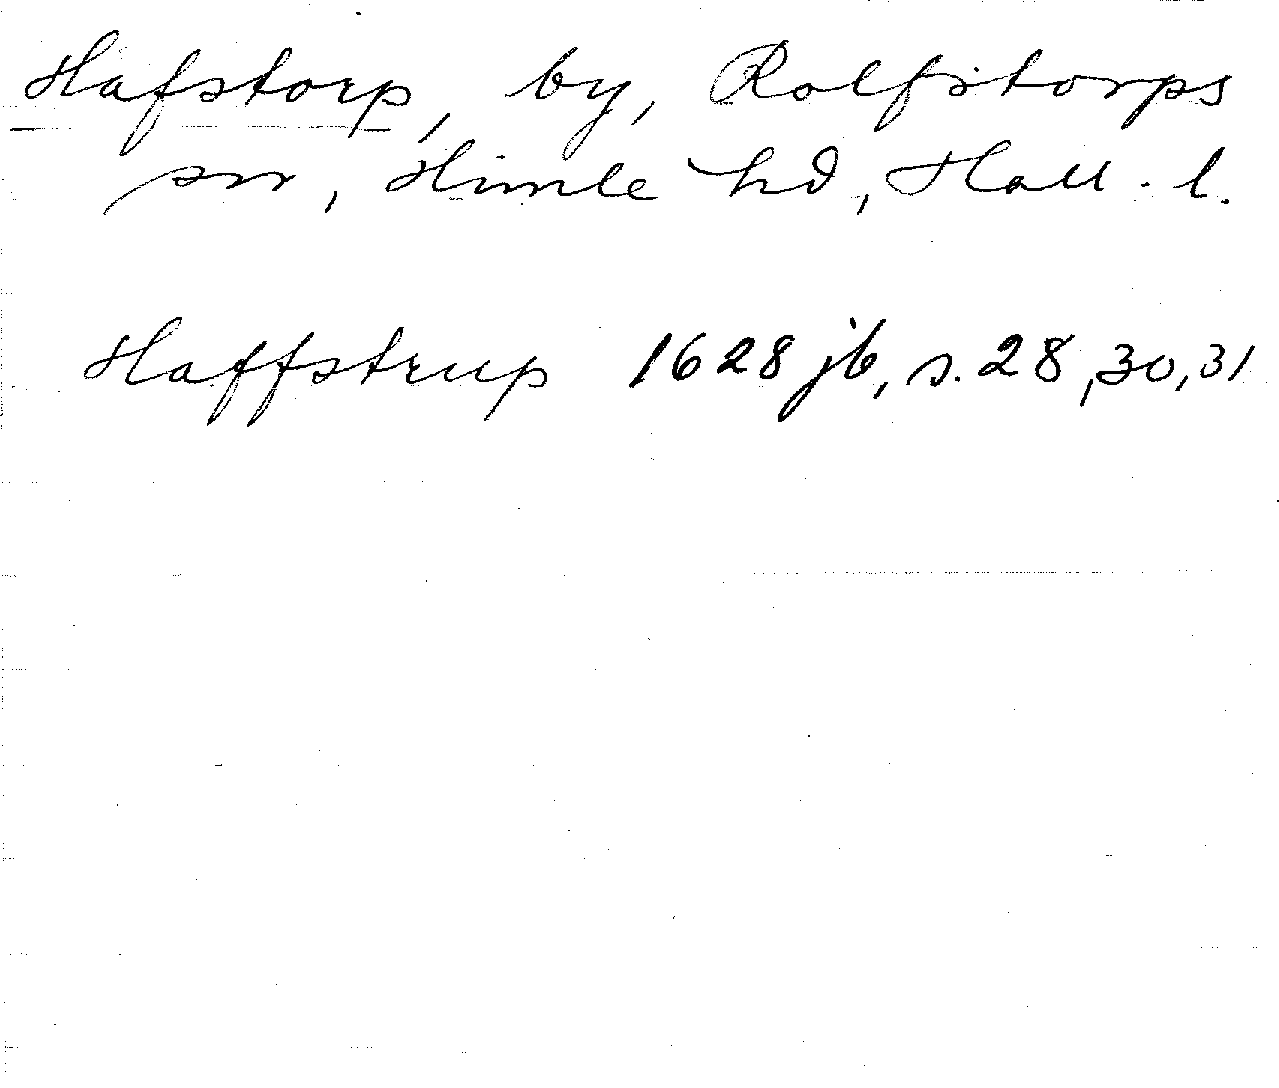 Hafstorp, by, Rolfstorps
sn, Himle hd, Hall. l.
Haffstrup 1628 jb, s. 28, 30, 31